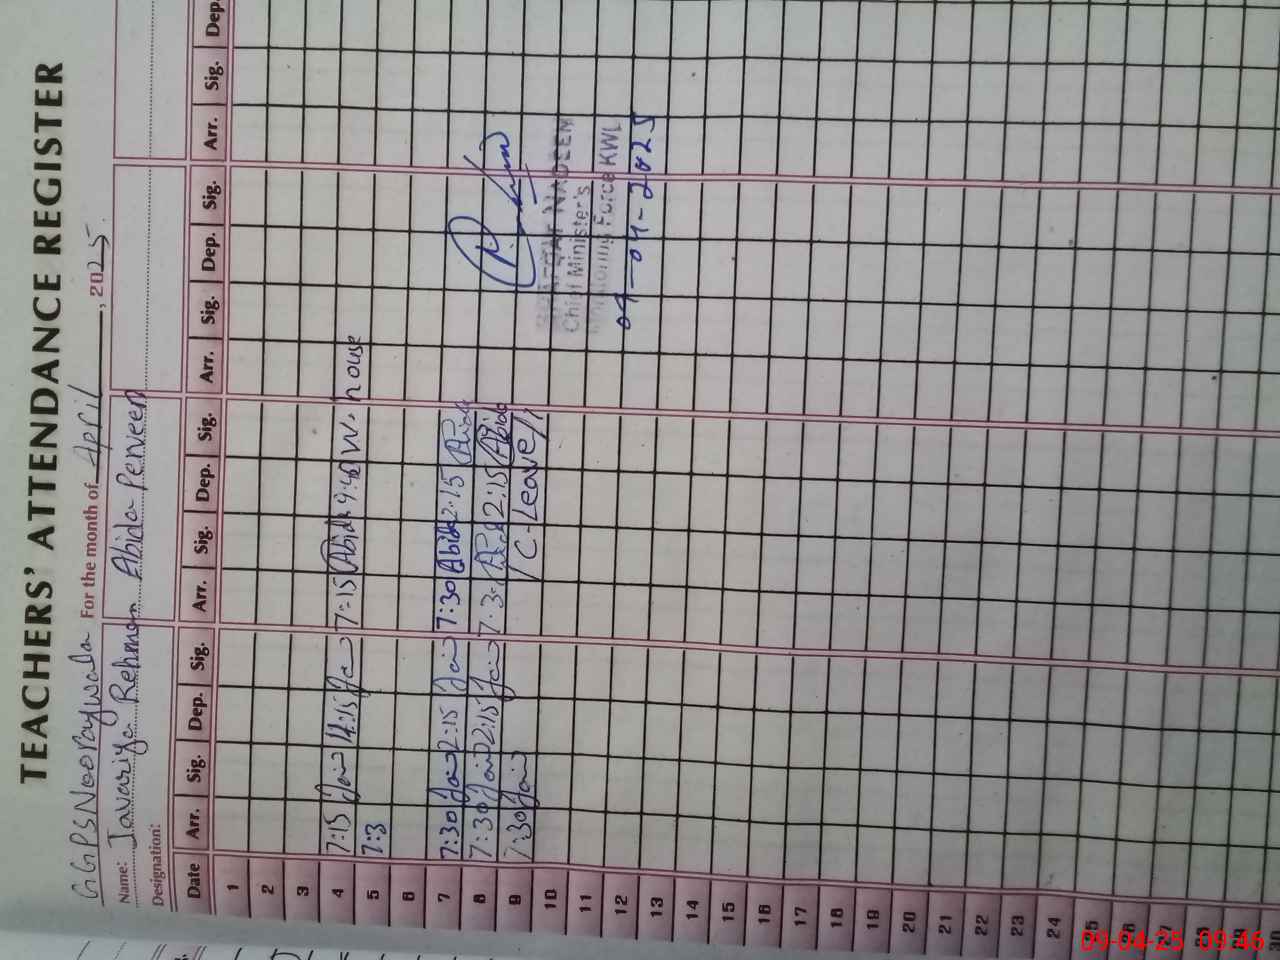 TEACHERS' ATTENDANCE REGISTER
GGPS Noor Paywala For the month of April, 2025
Name: Javariya Rehman Abida Perveen
Designation:
Date Arr. Sig. Dep. Sig. Arr. Sig. Dep. Sig. Arr. Sig. Dep. Sig. Arr. Sig. Dep.
1
2
3
4 7:15 Jav 12:15 Jav 7:15 Abida 9:40 W. house
5 7:3
6
7 7:30 Jav 2:15 Jav 7:30 Abida 2:15 Abida
8 7:30 Jav 2:15 Jav 7:3 Abida 2:15 Abida
9 7:30 Jav C-Leave
10
11
12
13
14
15
16
17
18
19
20
21
22
23
24
25
26
27
28
29
30
NADEEM
Chief Minister's
Monitoring Force KWL
09-04-2025
09-04-25 09:46